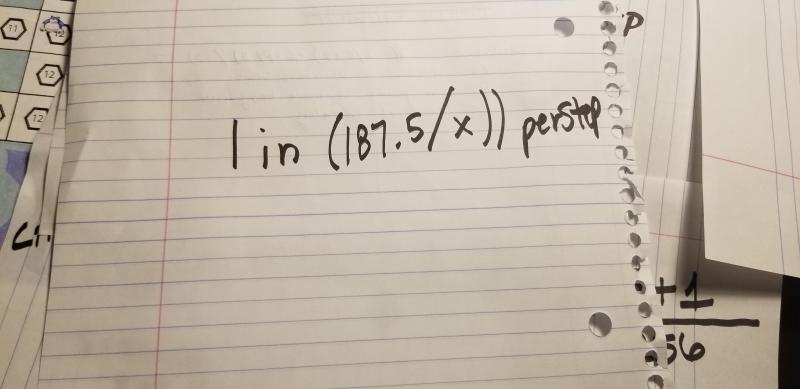 11
12
12
12
P
1 in (187.5/x)) per step
+1
56